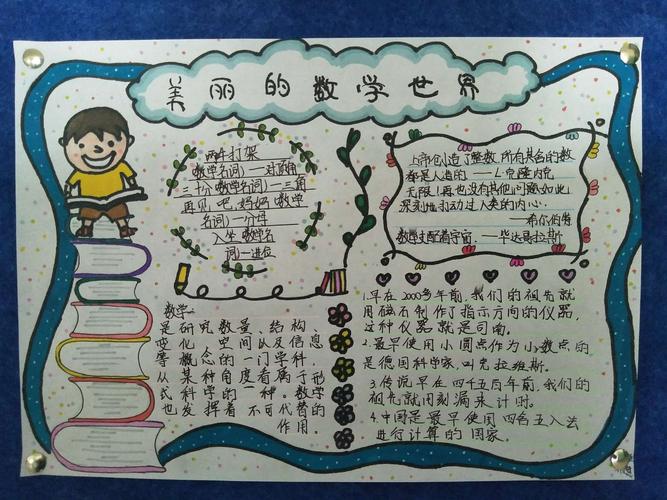 美丽的数学世界
两牛打架
(数学名词)—对顶角
三十分(数学名词)—三角
再见吧,妈妈(数学
名词)—分母
入坐(数学名
词)—进位
上帝创造了整数,所有其余的数
都是人造的 ——L·克隆内克
无限!再也没有其他问题如此
深刻地打动过人类的内心.
——希尔伯特
数学支配着宇宙.——毕达哥拉斯
数学:
是研究数量、结构、
变化、空间以及信息
等概念的一门学科,
从某种角度看属于形
式科学的一种。数学
也发挥着不可代替的
作用.
1.早在2000多年前,我们的祖先就
用磁石制作了指示方向的仪器,
这种仪器就是司南。
2.最早使用小圆点作为小数点的
是德国科学家,叫克拉维斯。
3.传说早在四千五百年前,我们的
祖先就用刻漏来计时。
4.中国是最早使用四舍五入法
进行计算的国家.